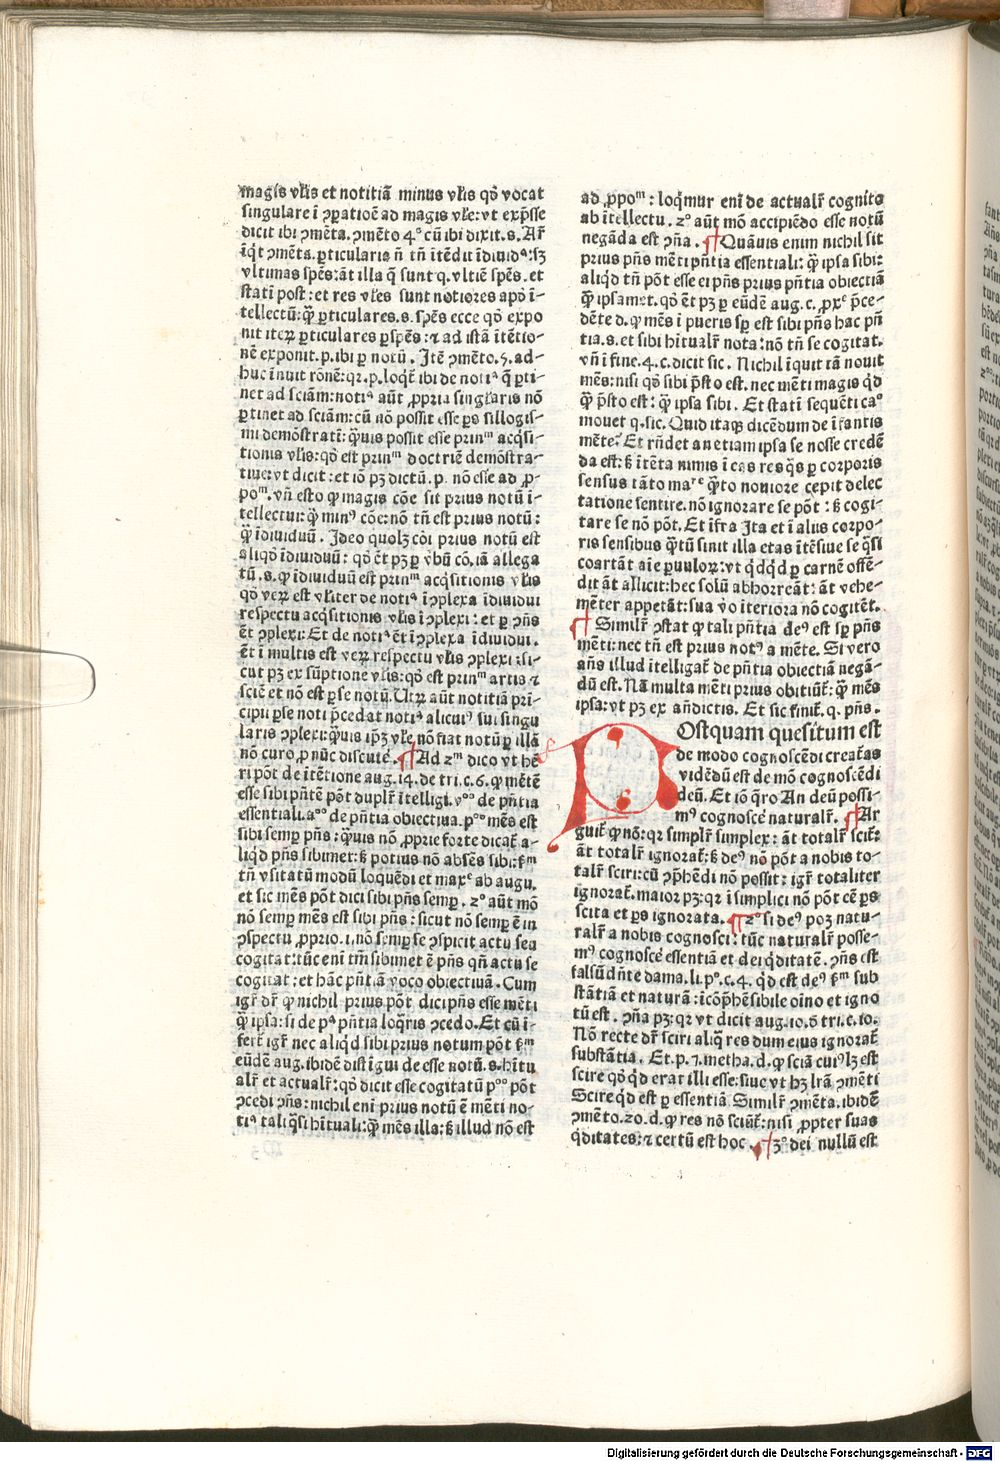 magis vl̄is et notitiā minus vl̄is qō vocat
singulare ī ꝯꝑatiōe ad magis vl̄e: vt exp̄sse
dicit ibi ꝯmēta. ꝯmēto 4° cū ibi dixit .s. Ar̄
vltimas spēs: āt illa q̄ sunt q. vltīe spēs. et
stati post: et res vl̄es sunt notiores apō ī-
tellectū: ꝙ̄ ꝑticulares .s. spēs ecce qō expo
nit iteꝝ ꝑticulares ꝑ spēs: ⁊ ad istā ītētio-
nē exponit .p. ibi ꝑ notū. Itē ꝯmēto .5. ad-
huc īnuit rōnē: qꝛ .p. loqt̄ ibi de notiᵃ q̄ ꝑti-
net ad sciām: notiᵃ aūt ꝓpria singl̄aris nō
ꝑtinet ad sciām: cū nō possit esse ꝑs sillogis-
mi demōstrati: ꝙ̄uis possit esse prinᵐ acq̄si-
tionis vl̄is: qō est prinᵐ doctrīe demōstra-
tiue: vt dicit: et iō pꝫ dictū .p. nō esse ad ꝓ-
poᵐ. vn̄ esto ꝙ magis cōe sit prius notū ī-
tellectui: ꝙ̄ minꝰ cōe: nō tn̄ est prius notū:
ꝙ̄ īdiuiduū. Ideo quolꝫ cōi prius notū est
aliqō īdiuiduū: qō ēt pꝫ ꝑ vbū cō. iā allega
tū .s. ꝙ īdiuiduū est prinᵐ acq̄sitionis vl̄is
qō veꝝ est vl̄iter de notiᵃ īꝯplexa īdiuidui
respectu acq̄sitionis vl̄is īꝯplexi: et ꝑ ꝯn̄s
ēt ꝯplexi: Et de notiᵃ ēt īꝯplexa īdiuidui.
ēt ī multis est veꝝ respectu vl̄is ꝯplexi: si-
cut pꝫ ex sūptione vl̄is: qō est prinᵐ artis ⁊
sciē et nō est ꝑ se notū. Utꝝ aūt notitiā pri-
cipii ꝑ se noti p̄cedat notiᵃ alicuiꝰ sui singu
laris ꝯplexi: ꝙ̄uis ip̄ꝫ vl̄e nō fiat notū ꝑ illā
nō curo ꝓ nūc discutē. ¶ Ad 2ᵐ dico vt hē
ri pōt de ītētione aug. 14. de tri. c. 6. ꝙ mētē
esse sibi pn̄tē pōt duplr̄ ītelligi. vᵒᵒ de pn̄tia
essentiali. aᵒᵒ de pn̄tia obiectiua. pᵒᵒ mēs est
sibi semꝑ pn̄s: ꝙ̄uis nō ꝓprie forte dicat̄ a-
liqd pn̄s sibimet: ꝫ potius nō absēs sibi: ẜᵐ
tn̄ vsitatū modū loquēdi et maxᵉ ab augu.
et sic mēs pōt dici sibi pn̄s semꝑ. 2° aūt mō
nō semꝑ mēs est sibi pn̄s: sicut nō semꝑ ē in
ꝯspectu ꝓprio .i. nō semꝑ se ꝯspicit actu seu
cogitat: tūc eni tm̄ sibimet ē pn̄s qn̄ actu se
cogitat: et hāc pn̄tiā voco obiectiuā. Cum
igr̄ dr̄ ꝙ nichil prius pōt dici pn̄s esse mēti
ꝙ̄ ipsa: si de pᵃ pn̄tia loq̄ris ꝯcedo. Et cū ī-
fert̄ igr̄ nec aliqd sibi prius notum pōt ẜᵐ
eūdē aug. ibidē distīgui de esse notū .s. hītu
alr̄ et actualr̄: qō dicit esse cogitatū pᵒᵒ pōt
ꝯcedi ꝯn̄s: nichil eni prius notū ē mēti no-
tiᵃ tali q̄si hītuali: ꝙ̄ mēs illa: ꝫ illud nō est
ad ꝓpoᵐ: loqmur eni de actualr̄ cognito
ab ītellectu. 2° aūt mō accipiēdo esse notū
negāda est ꝯn̄a. ¶ Quāuis enim nichil sit
prius pn̄s mēti pn̄tia essentiali: ꝙ̄ ipsa sibi:
aliqd tn̄ pōt esse ei pn̄s prius pn̄tia obiectiā
ꝙ̄ ipsamet. qō ēt pꝫ ꝑ eūdē aug. c. ꝓxᵉ p̄ce-
dēte d. ꝙ mēs ī pueris sꝑ est sibi pn̄s hac pn̄
tia .s. et sibi hītualr̄ nota: nō tn̄ se cogitat.
vn̄ ī fine .4. c. dicit sic. Nichil īquit tā nouit
mēs: nisi qō sibi p̄sto est. nec mēti magis qd
ꝙ̄ p̄sto est: ꝙ̄ ipsa sibi. Et stati sequēti caᵒ
mouet q. sic. Quid itaqꝫ dicēdum de īfantis
mēte? Et rn̄det an etiam ipsa se nosse credē
da est: ꝫ ītēta nimis ī eas res q̄s ꝑ corporis
sensus tāto maʳᵉ ꝙ̄to nouiore cepit delec
tatione sentire. nō ignorare se pōt: ꝫ cogi-
tare se nō pōt. Et īfra Ita et ī alius corpo-
ris sensibus ꝙ̄tū sinit illa etas ītēsiue se q̄si
coartāt aīe ꝑuuloꝝ: vt qdqd ꝑ carnē offē-
dit āt allicit: hec solū abhorreāt: āt vehe-
mēter appetāt: sua vo īteriora nō cogitēt.
¶ Similr̄ ꝯstat ꝙ tali pn̄tia deꝰ est sꝑ pn̄s
mēti: nec tn̄ est prius notꝰ a mēte. Si vero
an̄s illud ītelligat̄ de pn̄tia obiectiā negā-
dū est. Nā multa mēti prius obitiūt̄: ꝙ̄ mēs
ipsa: vt pꝫ ex an̄dictis. Et sic finit̄ .q. pn̄s.
POstquam quesitum est
de modo cognoscēdi creat̄as
vidēdū est de mō cognoscēdi
deū. Et iō q̄ro An deū possi-
mꝰ cognoscē naturalr̄. ¶ Ar
guit̄ ꝙ nō: qꝛ simplr̄ simplex: āt totalr̄ scit̄:
āt totalr̄ ignorat̄: ꝫ deꝰ nō pōt a nobis to-
talr̄ sciri: cū ꝯp̄hēdi nō possit: igr̄ totaliter
ignorat̄. maior pꝫ: qꝛ ī simplici nō pōt cē ꝑs
scita et ꝑs ignorata. ¶ 2° si deꝰ poꝫ natu-
ralr̄ a nobis cognosci: tūc naturalr̄ posse-
mꝰ cognoscē essentiā et dei qditatē. ꝯn̄s est
falsū dn̄te dama. li. pᵒ. c. 4. qd est deꝰ ẜᵐ sub
stātiā et naturā: īcōp̄hēsibile oīno et igno
tū est. ꝯn̄a pꝫ: qꝛ vt dicit aug. 10. ō tri. c. 10.
Nō recte dr̄ sciri aliq̄ res dum eius ignorat̄
substātia. Et .p. 7. metha. d. ꝙ sciā cuiꝰlꝫ est
scire qō qd erat illi esse: siue vt hꝫ lr̄ā ꝯmēti
Scire qd est ꝑ essentiā. Similr̄ ꝯmēta. ibidē
ꝯmēto. 20. d. ꝙ res nō sciūt̄: nisi ꝓpter suas
qditates: ⁊ certū est hoc. ¶ 3° dei nullū est
Digitalisierung gefördert durch die Deutsche Forschungsgemeinschaft - DFG